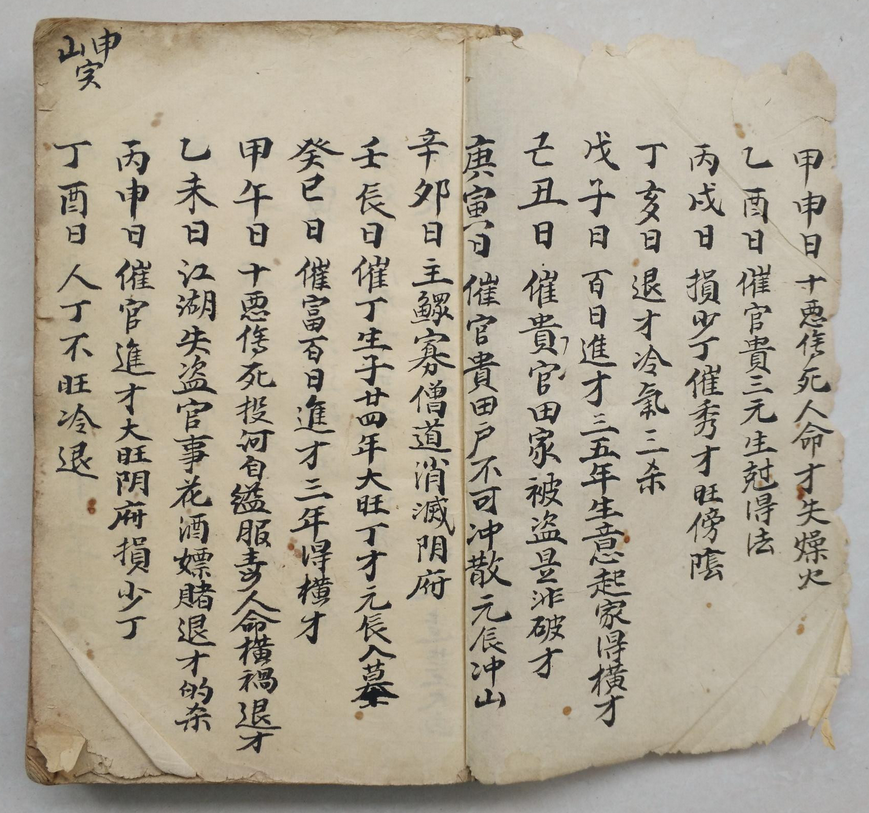 甲申日十悪傷死人命才失燥火
乙酉日催官貴三元生尅得法
丙戌日損少丁催秀才旺傍蔭
丁亥日退才冷氣三杀
戊子日百日進才三五年生意起家得横才
己丑日催貴官田家被盗是非破才
庚寅日催官貴田户不可冲散元辰冲山
辛夘日主鳏寡僧道消滅阴府
壬辰日催丁生子廿四年大旺丁才元辰入墓
癸巳日催富百日進才三年得横才
甲午日十悪傷死投河自缢服毒人命横禍退才
乙未日江湖失盗官事花酒嫖賭退才的杀
丙申日催官進才大旺阴府損少丁
丁酉日人丁不旺冷退
申
山